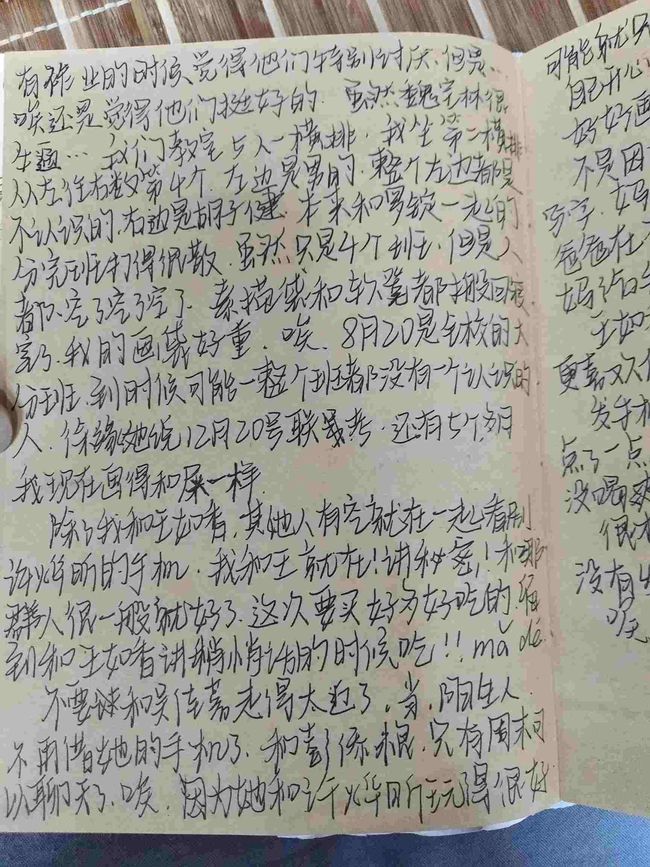 有作业的时候觉得他们特别讨厌.但是…
唉还是觉得他们挺好的.虽然魏完林很
生…我们教室5人一横排.我坐第二横排
从左往右数第4个.左边是男的.整个左边都是
不认识的.右边是胡子健.本来和罗锭一起的
分完班打得很散.虽然只是4个班.但是人
都空了空了空了.素描袋和软凳都搬回寝
室了.我的画袋好重.唉.8月20是全校的大
分班.到时候可能一整个班都没有一个认识的
人.徐缘她说12月20号联考.还有5个多月
我现在画得和屎一样.
除了我和王如香,其她人有空就在一起看剧
许烨昕的手机.我和王就在!讲秘密!和那
群人很一般就好了.这次要买好多好吃的.留
到和王如香讲悄悄话的时候吃!!mǎ de.
不要读和吴佳嘉走得太近了.当陌生人.
不用借她的手机了.和彭你.只有周末可
以聊天了.唉.因为她和许烨昕玩得很好
可能就只
自己开心
好好画
不是因
写字.妈
爸爸在
妈给
王如
更喜欢
发手机
点了一点
没喝
很
没有
唉